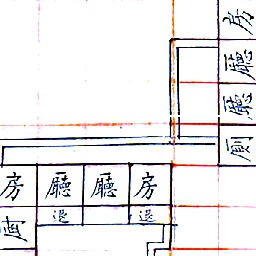 房
廳
廳
廁
房 廳 廳 房
退 退